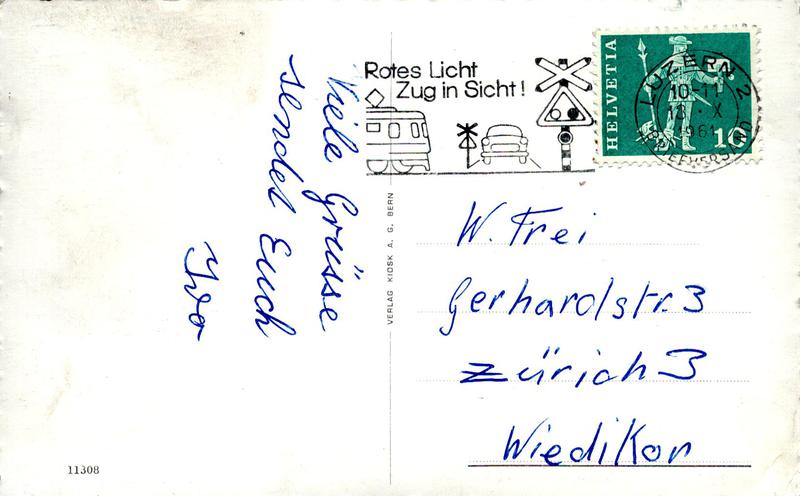 Viele Grüsse
sendet Euch
Ivo
Rotes Licht
Zug in Sicht!
HELVETIA
10
LUZERN 2
10-11
13·X
1961
BRIEFVERSAND
VERLAG KIOSK A. G. BERN
W. Frei
Gerhardstr. 3
Zürich 3
Wiedikon
11308